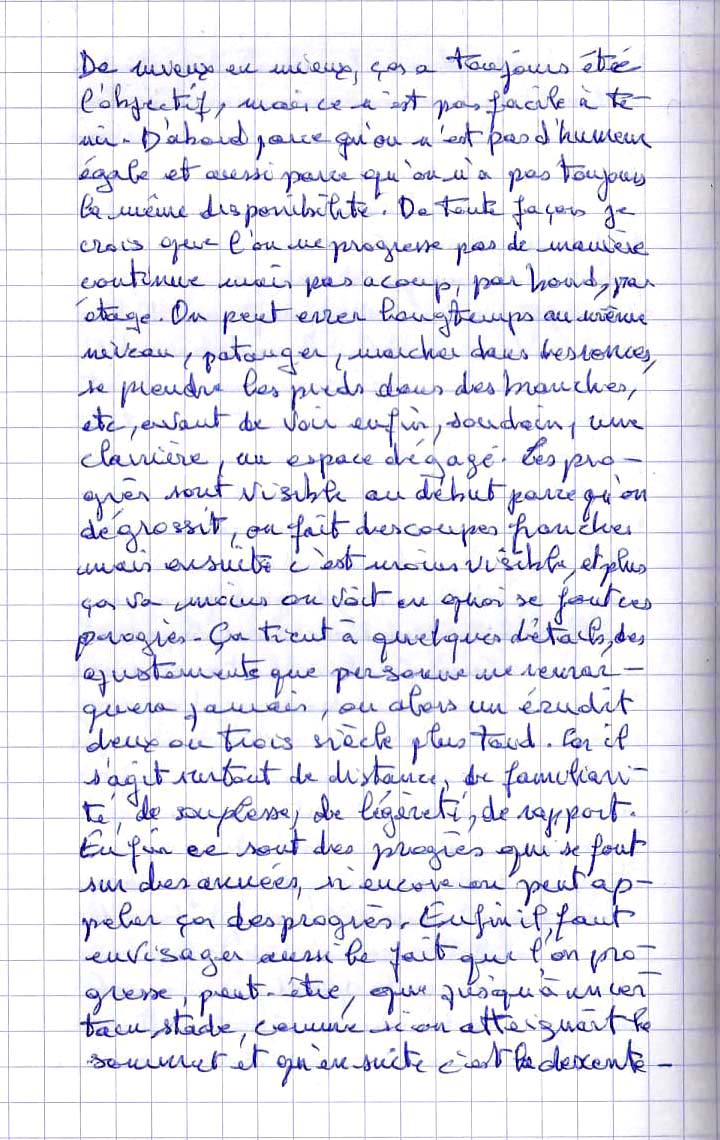 De mieux en mieux, ça a toujours été
l'objectif, mais ce n'est pas facile à te-
nir. D'abord parce qu'on n'est pas d'humeur
égale et aussi parce qu'on n'a pas toujours
la même disponibilité. De toute façon je
crois que l'on ne progresse pas de manière
continue mais pas acoup, par bond, par
étage. On peut errer longtemps au même
niveau, patauger, marcher dans les ronces,
se prendre les pieds dans des branches,
etc, avant de voir enfin, soudain, une
clairière, un espace dégagé. Les pro-
grès sont visible au début parce qu'on
dégrossit, on fait des coupes franches
mais ensuite c'est moins visible, et plus
ça va moins on voit en quoi se font ces
progrès. Ça tient à quelques détails, des
ajustements que personne ne remar-
quera jamais, ou alors un érudit
deux ou trois siècle plus tard. Car il
s'agit surtout de distance, de familiari-
té, de souplesse, de légèreté, de rapport.
Enfin ce sont des progrès qui se font
sur des années, si encore on peut ap-
peler ça des progrès. Enfin il faut
envisager aussi le fait que l'on pro-
gresse, peut-être, que jusqu'à un cer
tain stade, comme si on atteignait le
sommet et qu'ensuite c'est la descente-